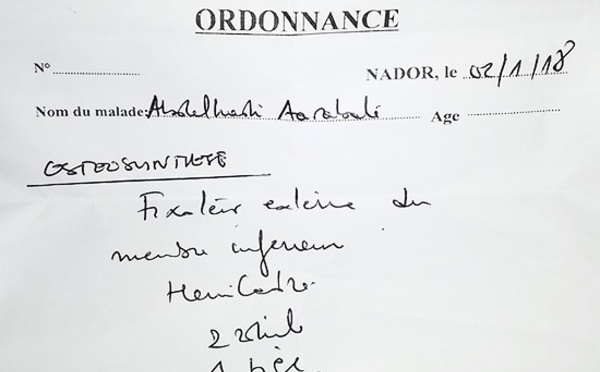 ORDONNANCE
N° ............ NADOR, le 02/1/18
Nom du malade: Age ............
OSTEOSYNTHESE
Fixateur externe du
membre inferieur
Hemi Cadre
2
1